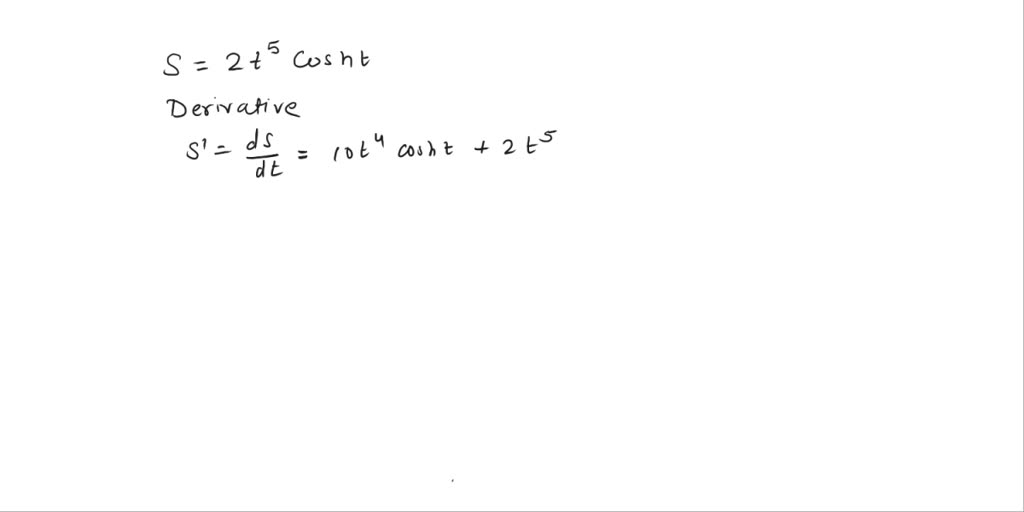 S = 2t⁵ Cosht
Derivative
S' = ds/dt = 10t⁴ cosht + 2t⁵